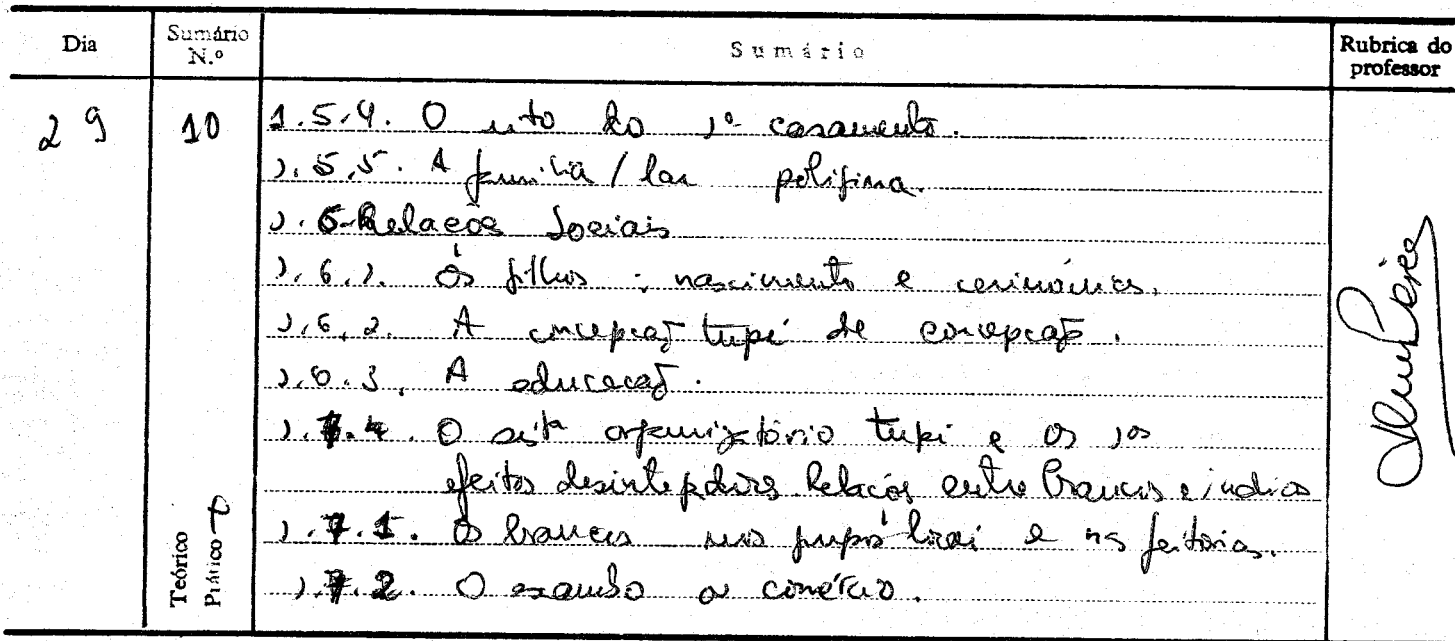 Dia
Sumário N.º
Sumário
Rubrica do professor
29
10
1.5.4. O rito do 1º casamento.
1.5.5. A família / lar polígina.
1.6. Relações Sociais
1.6.1. Os filhos: nascimento e cerimónias.
1.6.2. A concepção tupi de concepção.
1.6.3. A educação.
1.7. O sistª organizatório tupi e os 1os
efeitos desintegradores. Relações entre brancos e índios
1.7.1. Os brancos nos grupos locais e nas feitorias.
1.7.2. O escambo ou comércio.
Teórico
Prático